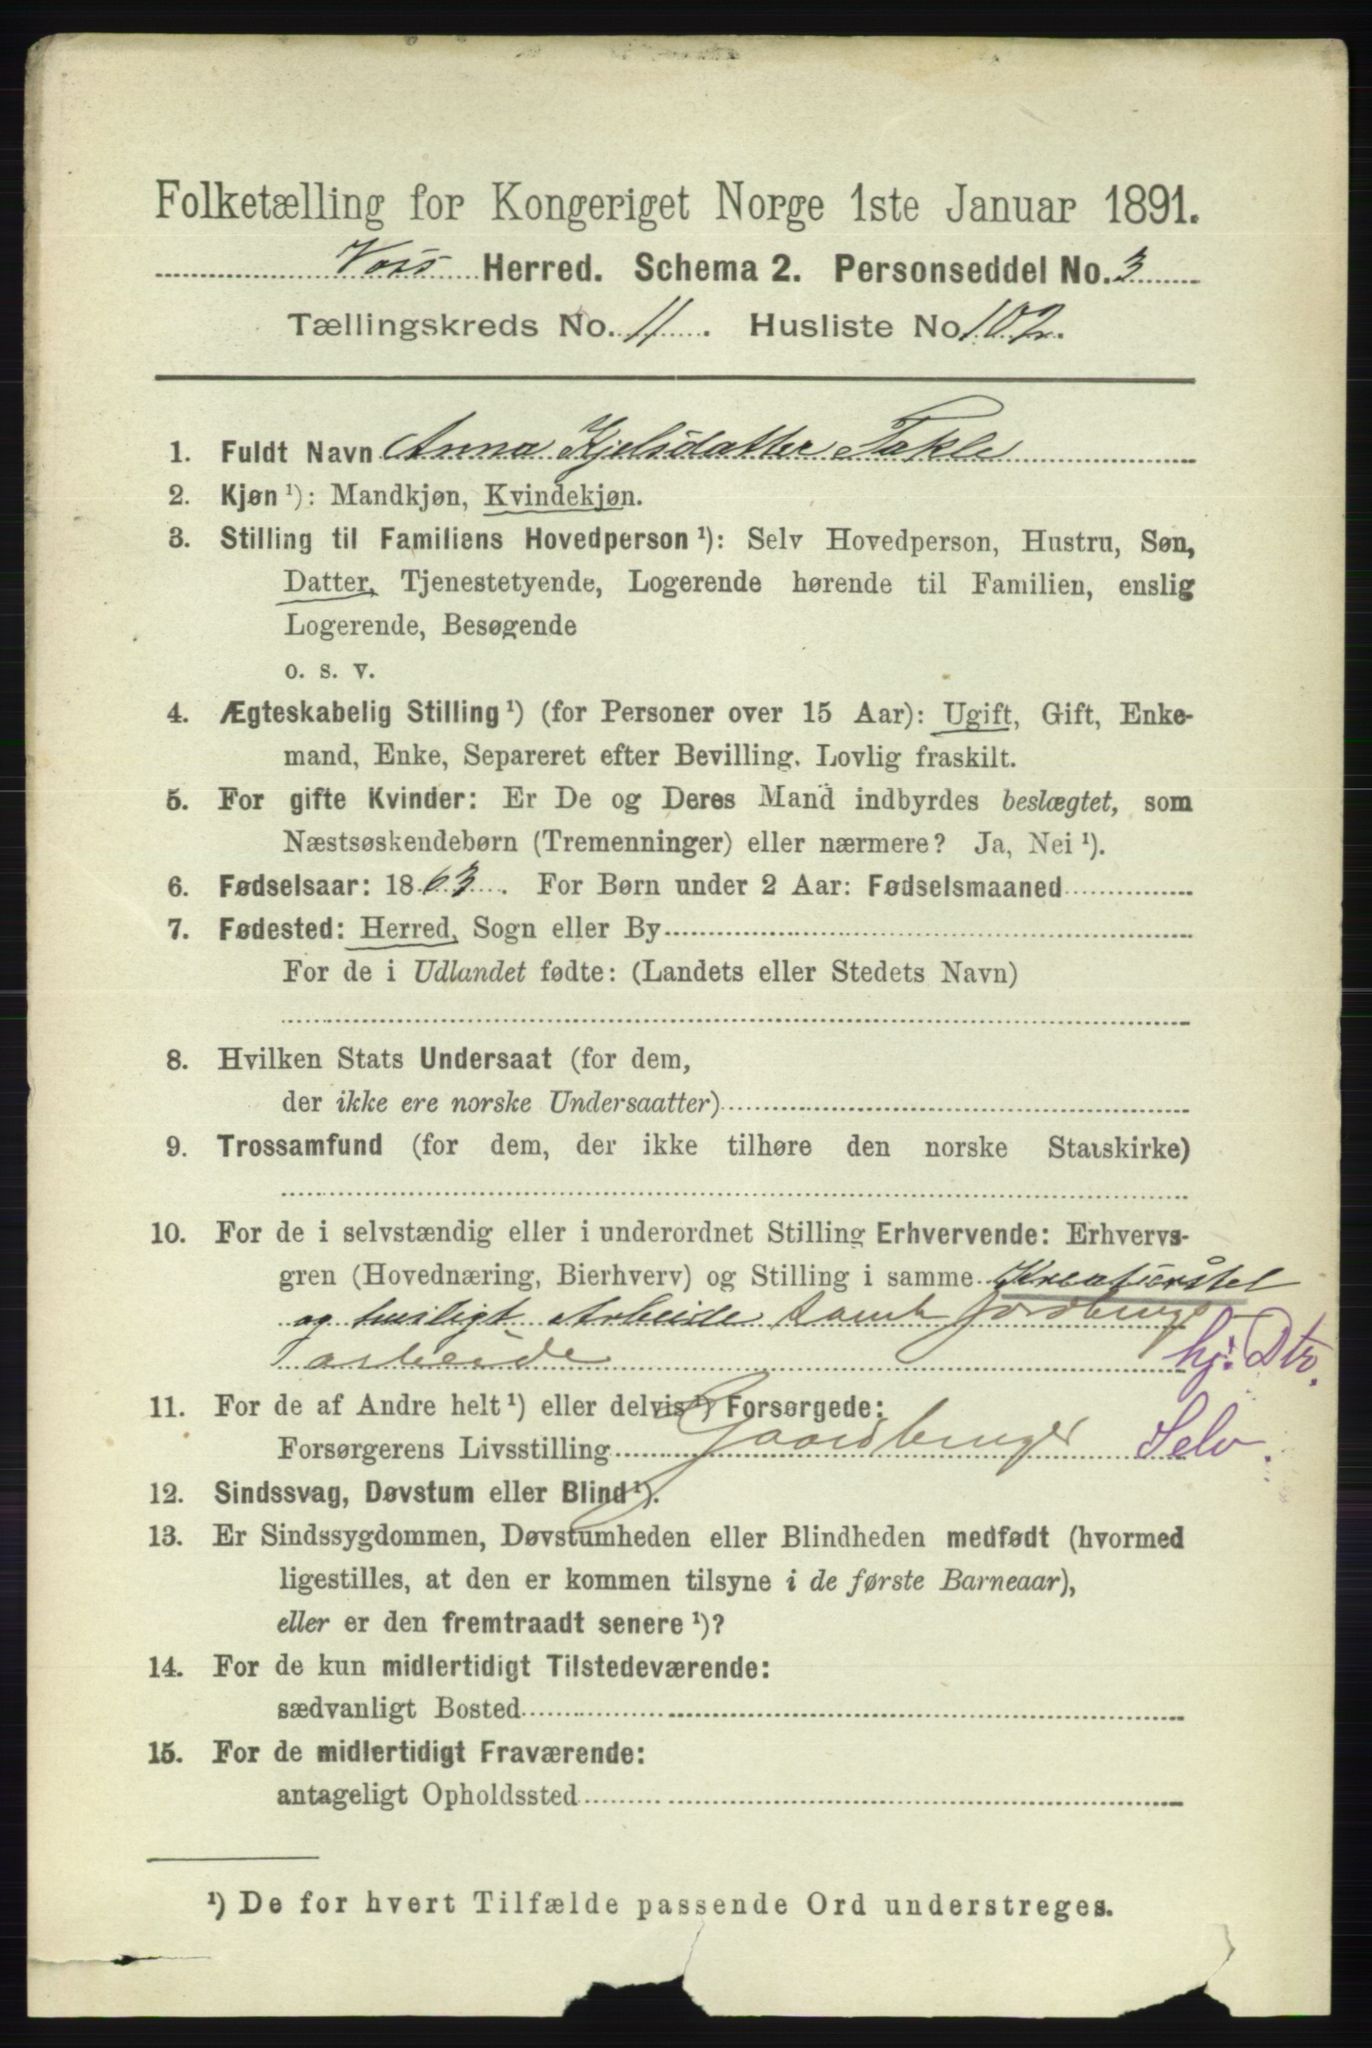 Folketælling for Kongeriget Norge 1ste Januar 1891.
Voss Herred. Schema 2. Personseddel No. 3
Tællingskreds No. 11. Husliste No 102.
1. Fuldt Navn Anna Kjelsdatter Takle
2. Kjøn ¹): Mandkjøn, Kvindekjøn.
3. Stilling til Familiens Hovedperson ¹): Selv Hovedperson, Hustru, Søn,
Datter, Tjenestetyende, Logerende hørende til Familien, enslig
Logerende, Besøgende
o. s. v.
4. Ægteskabelig Stilling ¹) (for Personer over 15 Aar): Ugift, Gift, Enke-
mand, Enke, Separeret efter Bevilling. Lovlig fraskilt.
5. For gifte Kvinder: Er De og Deres Mand indbyrdes beslægtet, som
Næstsøskendebørn (Tremenninger) eller nærmere? Ja, Nei ¹).
6. Fødselsaar: 1863. For Børn under 2 Aar: Fødselsmaaned
7. Fødested: Herred, Sogn eller By
For de i Udlandet fødte: (Landets eller Stedets Navn)
8. Hvilken Stats Undersaat (for dem,
der ikke ere norske Undersaatter)
9. Trossamfund (for dem, der ikke tilhøre den norske Statskirke)
10. For de i selvstændig eller i underordnet Stilling Erhvervende: Erhvervs-
gren (Hovednæring, Bierhverv) og Stilling i samme Kreaturstel
og husligt Arbeide samt Jordbrugs
arbeide hj. Dtr.
11. For de af Andre helt ¹) eller delvis ¹) Forsørgede:
Forsørgerens Livsstilling Gaardbruger Selv.
12. Sindssvag, Døvstum eller Blind ¹).
13. Er Sindssygdommen, Døvstumheden eller Blindheden medfødt (hvormed
ligestilles, at den er kommen tilsyne i de første Barneaar),
eller er den fremtraadt senere ¹)?
14. For de kun midlertidigt Tilstedeværende:
sædvanligt Bosted
15. For de midlertidigt Fraværende:
antageligt Opholdssted
¹) De for hvert Tilfælde passende Ord understreges.